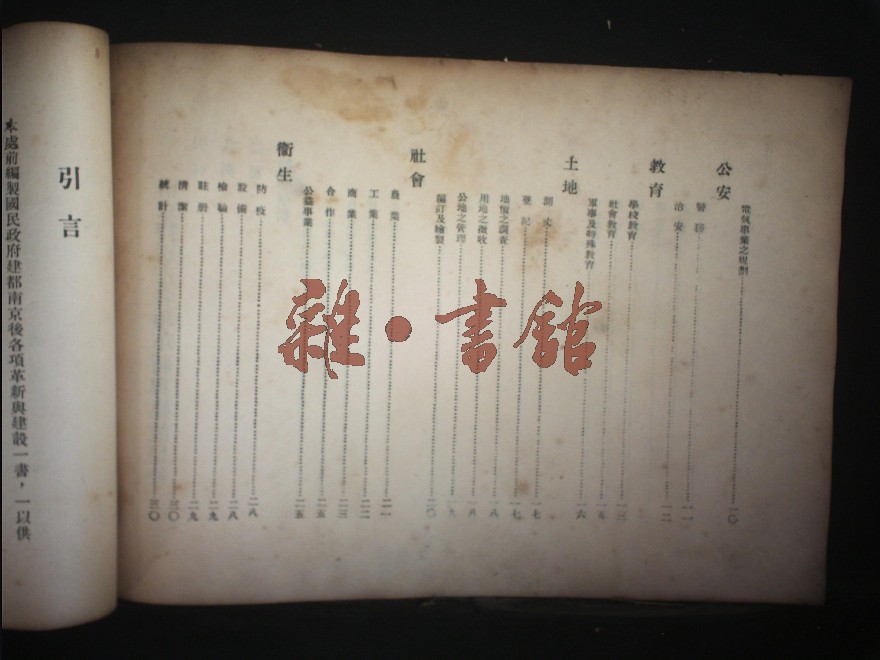 電氣事業之規劃 一〇
公安
警務 一一
治安 一二
教育
學校教育 一三
社會教育 一五
軍事及特殊教育 一六
土地
測丈 一七
登記 一七
地價之調查 一八
用地之徵收 一八
公地之管理 一九
編訂及繪製 二〇
社會
農業 二一
工業 二二
商業 二三
合作 二五
公益事業 二五
衞生
防疫 二八
設備 二八
檢驗 二九
註册 二九
清潔 三〇
統計 三〇
引言
本處前編製國民政府建都南京後各項革新與建設一書，一以供
雜·書館